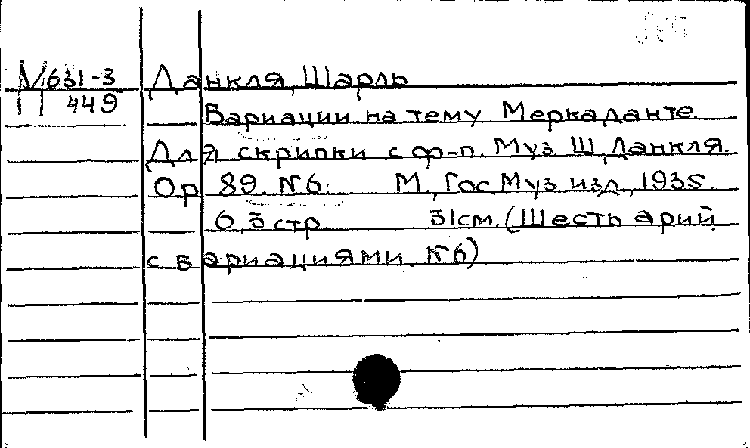 М631-3 Данкля, Шарль
449
Вариации на тему Меркаданте.
Для скрипки с ф-п. Муз. Ш. Данкля.
Op. 89. №6. М., Гос. Муз. изд., 1935.
6, 3 стр. 31см. (Шесть арий
с вариациями. №6)